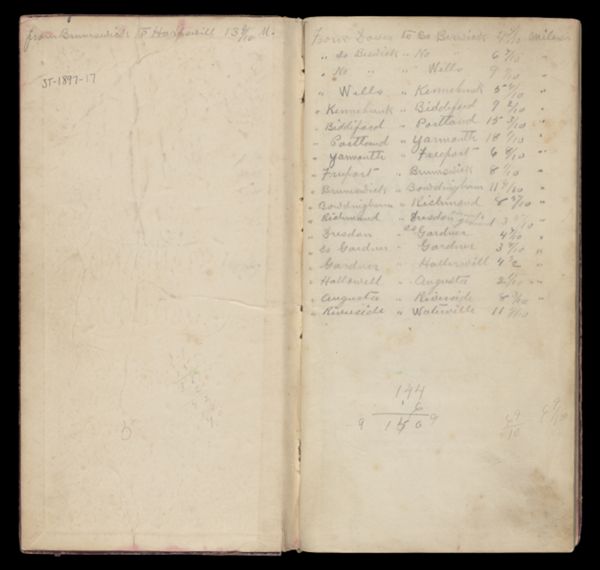 from Brunswick to Harpswell 13 9/10 M.
ST-1897-17
From Dover to So Berwick /10 miles
" So Berwick " No " 6 7/10 "
" No " " Wells 9 /10 "
" Wells " Kennebunk 5 /10 "
" Kennebunk " Biddiford 9 2/10 "
" Biddiford " Portland 15 3/10 "
" Portland " Yarmouth 18 /10 "
" Yarmouth " Freeport 6 8/10 "
" Freeport " Brunswick 8 /10 "
" Brunswick " Bowdingham 11 /10 "
" Bowdingham " Richmond 8 /10 "
" Richmond " Dresden camp ground 3 /10 "
" Dresdon " So Gardner 4 /10 "
" So Gardner " Gardner 3 /10 "
" Gardner " Hallowell 4 "
" Hallowell " Augusta 2 /10 "
" Augusta " Riverside 8 /10 "
" Riverside " Waterville 11 /10
144
6
9 150 9